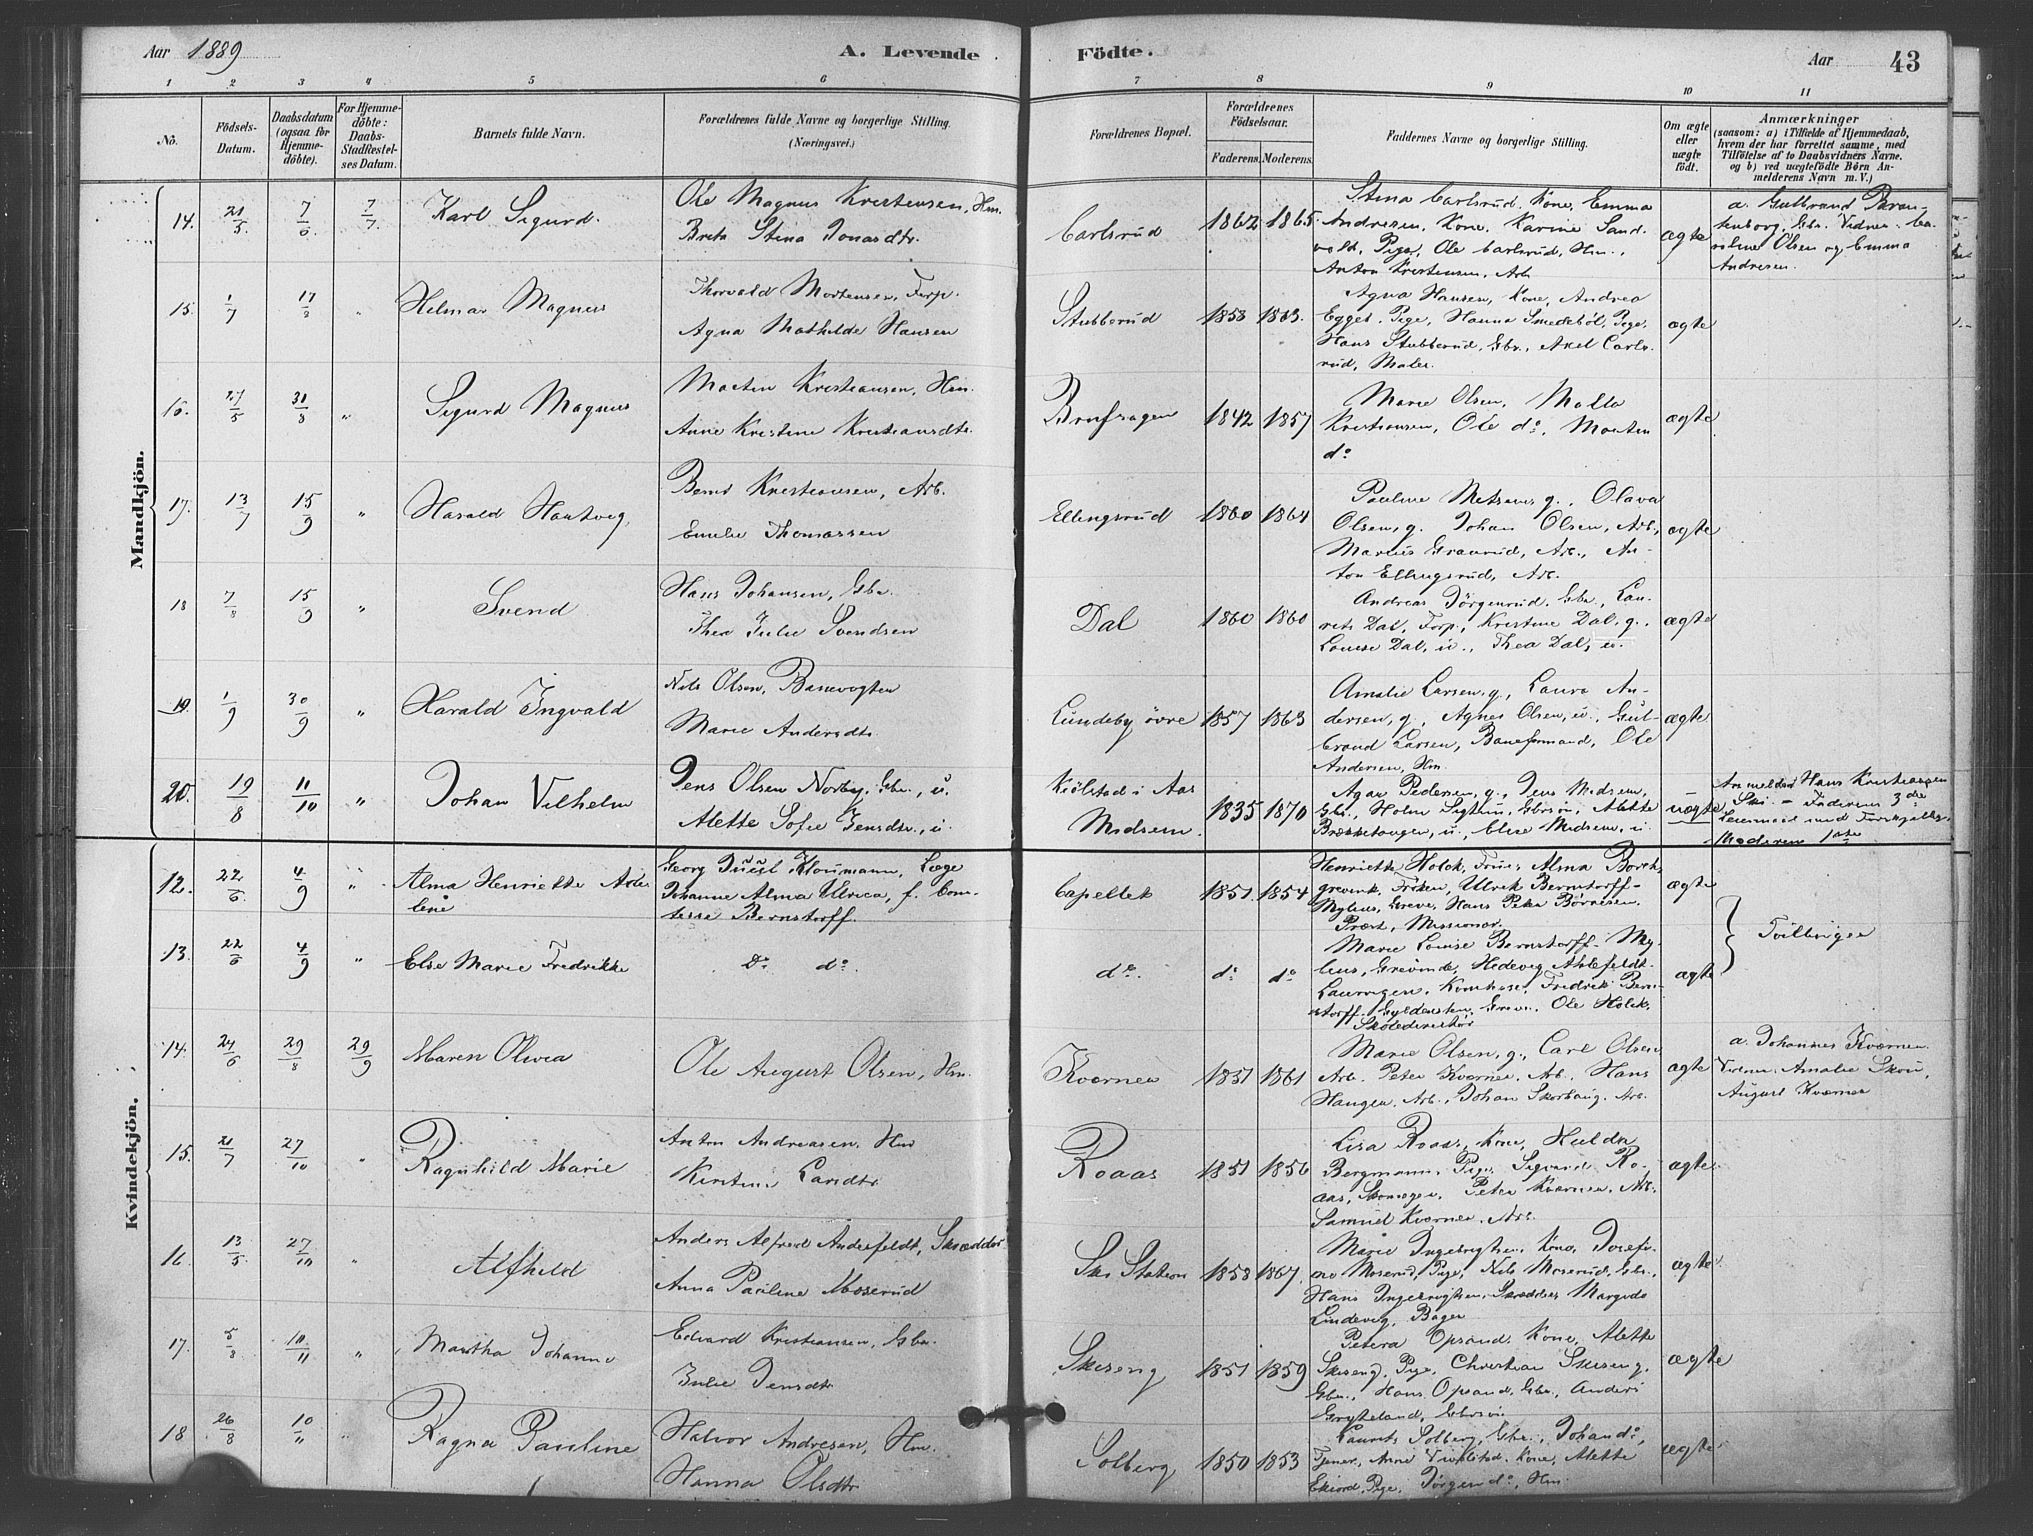 Aar 1889
A. Levende Födte.
Aar
43
1 2 3 4 5 6 7 8 9 10 11
No.
Födsels-Datum.
Daabsdatum (ogsaa for Hjemmedöbte).
For Hjemmedöbte: Daabs-Stadfæstelses Datum.
Barnets fulde Navn.
Forældrenes fulde Navne og borgerlige Stilling.
(Næringsvei.)
Forældrenes Bopæl.
Forældrenes Födselsaar.
Faderens. Moderens.
Faddernes Navne og borgerlige Stilling.
Om ægte eller uægte födt.
Anmærkninger
(saasom: a) i Tilfælde af Hjemmedaab, hvem der har forrettet samme, med Tilföielse af to Daabsvidners Navne. og b) ved uægtefödte Börn Anmelderens Navn m. V.)
Mandkjön.
14. 21/5 7/6 7/7. Karl Sigurd.
Ole Magnus Kristensen, Hm.
Brita Stina Jonasdtr.
Carlsrud 1862 1865.
Stina Carlsrud, Kone, Emma
Andresen, Kone, Karine Sand-
vold, Pige, Ole Carlsrud, Hm.,
Anton Kristensen, Arb.
ægte
a. Gulbrand Bran-
tenborg, Gbr. Vidner: Ca-
roline Olsen og Emma
Andresen.
15. 1/7 17/8 " Helmar Magnus
Thorvald Mortensen, Forp.
Agna Mathilde Hansen
Stubberud 1858 1863.
Agna Hansen, Kone, Andrea
Egget, Pige, Hanna Smedsböl, Pige,
Hans Stubberud, Gbr., Axel Carls-
rud, Maler.
ægte
16. 27/5 31/8 " Sigurd Magnus
Morten Kristiansen, Hm.
Anne Kristine Kristiansdtr.
1842 1857
Marie Olsen,
Kristiansen, Ole do, Morten
do
ægte
17. 13/7 15/9 " Harald Hartvig
Bernt Kristiansen, Arb.
Emilie Thomassen
Ellingsrud 1860 1864
Pauline g., Olava
Olsen, g. Johan Olsen, Arb.,
Marius Graverud, Arb., An-
ton Ellingsrud, Arb.
ægte
18 7/8 15/9 " Svend
Hans Johansen, Gbr.
Thea Julie Svendsen
Dal 1860 1860
Andreas Jörgenrud, Gbr., Lau-
rits Dal, Forp., Kristine Dal, g.,
Lovise Dal, u., Thea Dal, u.
ægte
19. 1/9 30/9 " Harald Ingvald
Nils Olsen, Banevogter
Marie Andersdtr.
Lundeby övre 1857 1863
Amalie Larsen, g., Laura An-
dersen, g., Agnes Olsen, u., Gul-
brand Larsen, Baneformand, Ole
Andersen, Hm.
ægte
20. 19/8 11/10 " Johan Vilhelm
Jens Olsen Norby, Gbr., u.
Alette Sofie Jensdtr., u.
Kjölstad i Aas
Midsem. 1835 1870
Agar Pedersen, g., Jens Midsem,
Gbr., Holm Gbrsön, Alette
u., Eline Midsem, u.
uægte
Anmelder Hans Kristiansen
Ski. – Faderens 3die
Leiermaal med
Moderens 1ste
Kvindekjön.
12. 22/6 4/9 " Alma Henriette Ade-
line
Georg Juul Houmann, Læge
Johanne Alma Ulrica, f. Com-
tesse Bernstorff.
Capellet 1851 1854
Henriette Holck, Frue, Alma Borch-
grevink, Fröken, Ulrik Bernstorff-
Mylius, Greve, Hans Peter Börresen,
Præst, Missionær.
ægte
Tvillinger
13. 22/6 4/9 " Else Marie Fredrikke
Do do.
do. do do
Marie Louise Bernstorff-My-
lius, Grevinde, Hedevig Ahlefeldt-
Laurvigen, Komtesse, Fredrik Bern-
storff-Gyldensten, Greve, Ole Holck,
Skoledirektör
ægte
14. 24/6 29/8 29/9 Maren Olivia
Ole August Olsen, Hm.
Kværner 1851 1861
Marie Olsen, g., Carl Olsen,
Arb. Peter Kværner, Arb., Hans
Haugen, Arb., Johan Skorhaug, Arb.
ægte
a. Johannes Kværner.
Vidner: Amalie Skou,
August Kværner
15. 21/7 27/10 " Ragnhild Marie
Anton Andreasen, Hm.
Kirstine Larsdtr.
Roaas 1851 1856
Lisa Roaas, Kone, Hulda
Bergmann, Pige, Sigvard Ro-
aas, Skomager, Peter Kværner, Arb.
Samuel Kværner, Arb.
ægte
16. 13/5 27/10 " Alfhild
Anders Alfred Anderfeldt, Skrædder
Anna Pauline Moserud
Ski Station 1858 1867.
Marie Ingebrigtsen, Kone, Josefi-
ne Moserud, Pige, Nils Moserud, Gbr.,
Hans Ingebrigtsen, Skrædder,
Lindevig, Bager
ægte
17. 5/8 10/11 " Martha Johanne
Edvard Kristiansen, Gbr.
Julie Jensdtr.
Skiseng 1851 1859
Petera Opsand, Kone, Alette
Skiseng, Pige, Christian Skiseng,
Gbr., Hans Opsand, Gbr., Anders
Gryteland, Gbrsön
ægte
18 26/8 10/11 " Ragna Pauline
Halvor Andresen, Hm.
Hanna Olsdtr.
Solberg 1850 1853
Laurits Solberg, Gbr., Johan do,
Tjener, Anne Kone, Alette
Pige, Jörgen do, Hm.
ægte